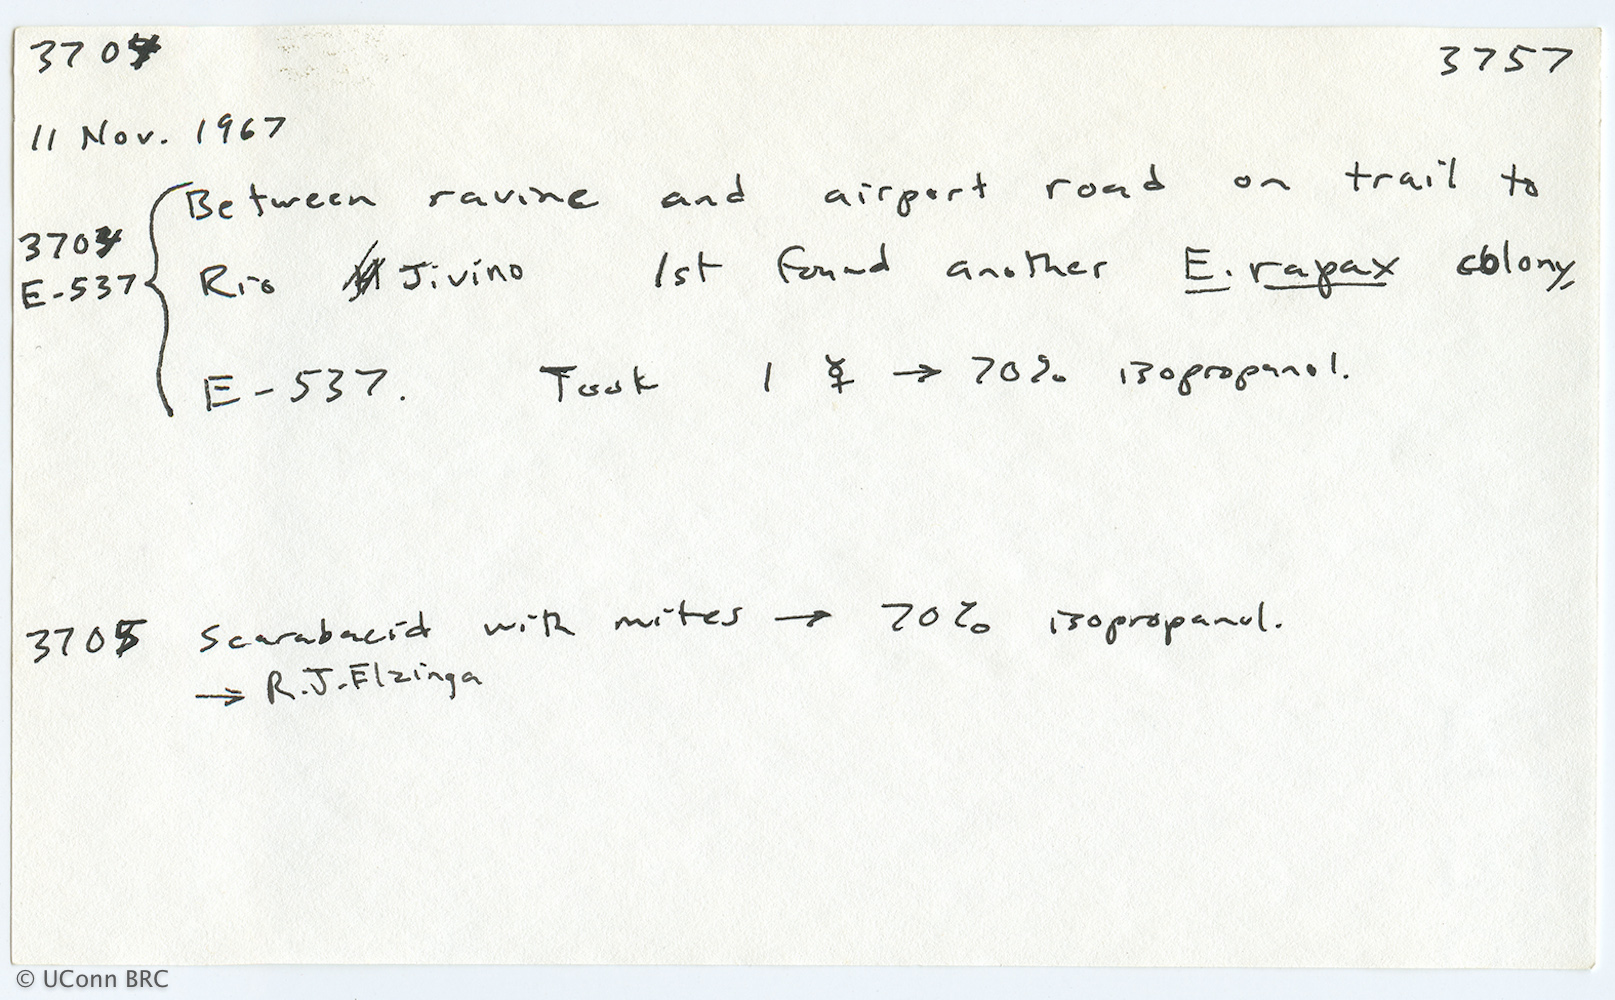 3704 3757
11 Nov. 1967
Between ravine and airport road on trail to
3704 Rio Jivino 1st found another E. rapax colony,
E-537
E-537. Took 1 ☿ → 70% isopropanol.
3705 Scarabaeid with mites → 70% isopropanol.
→ R.J. Elzinga
© UConn BRC